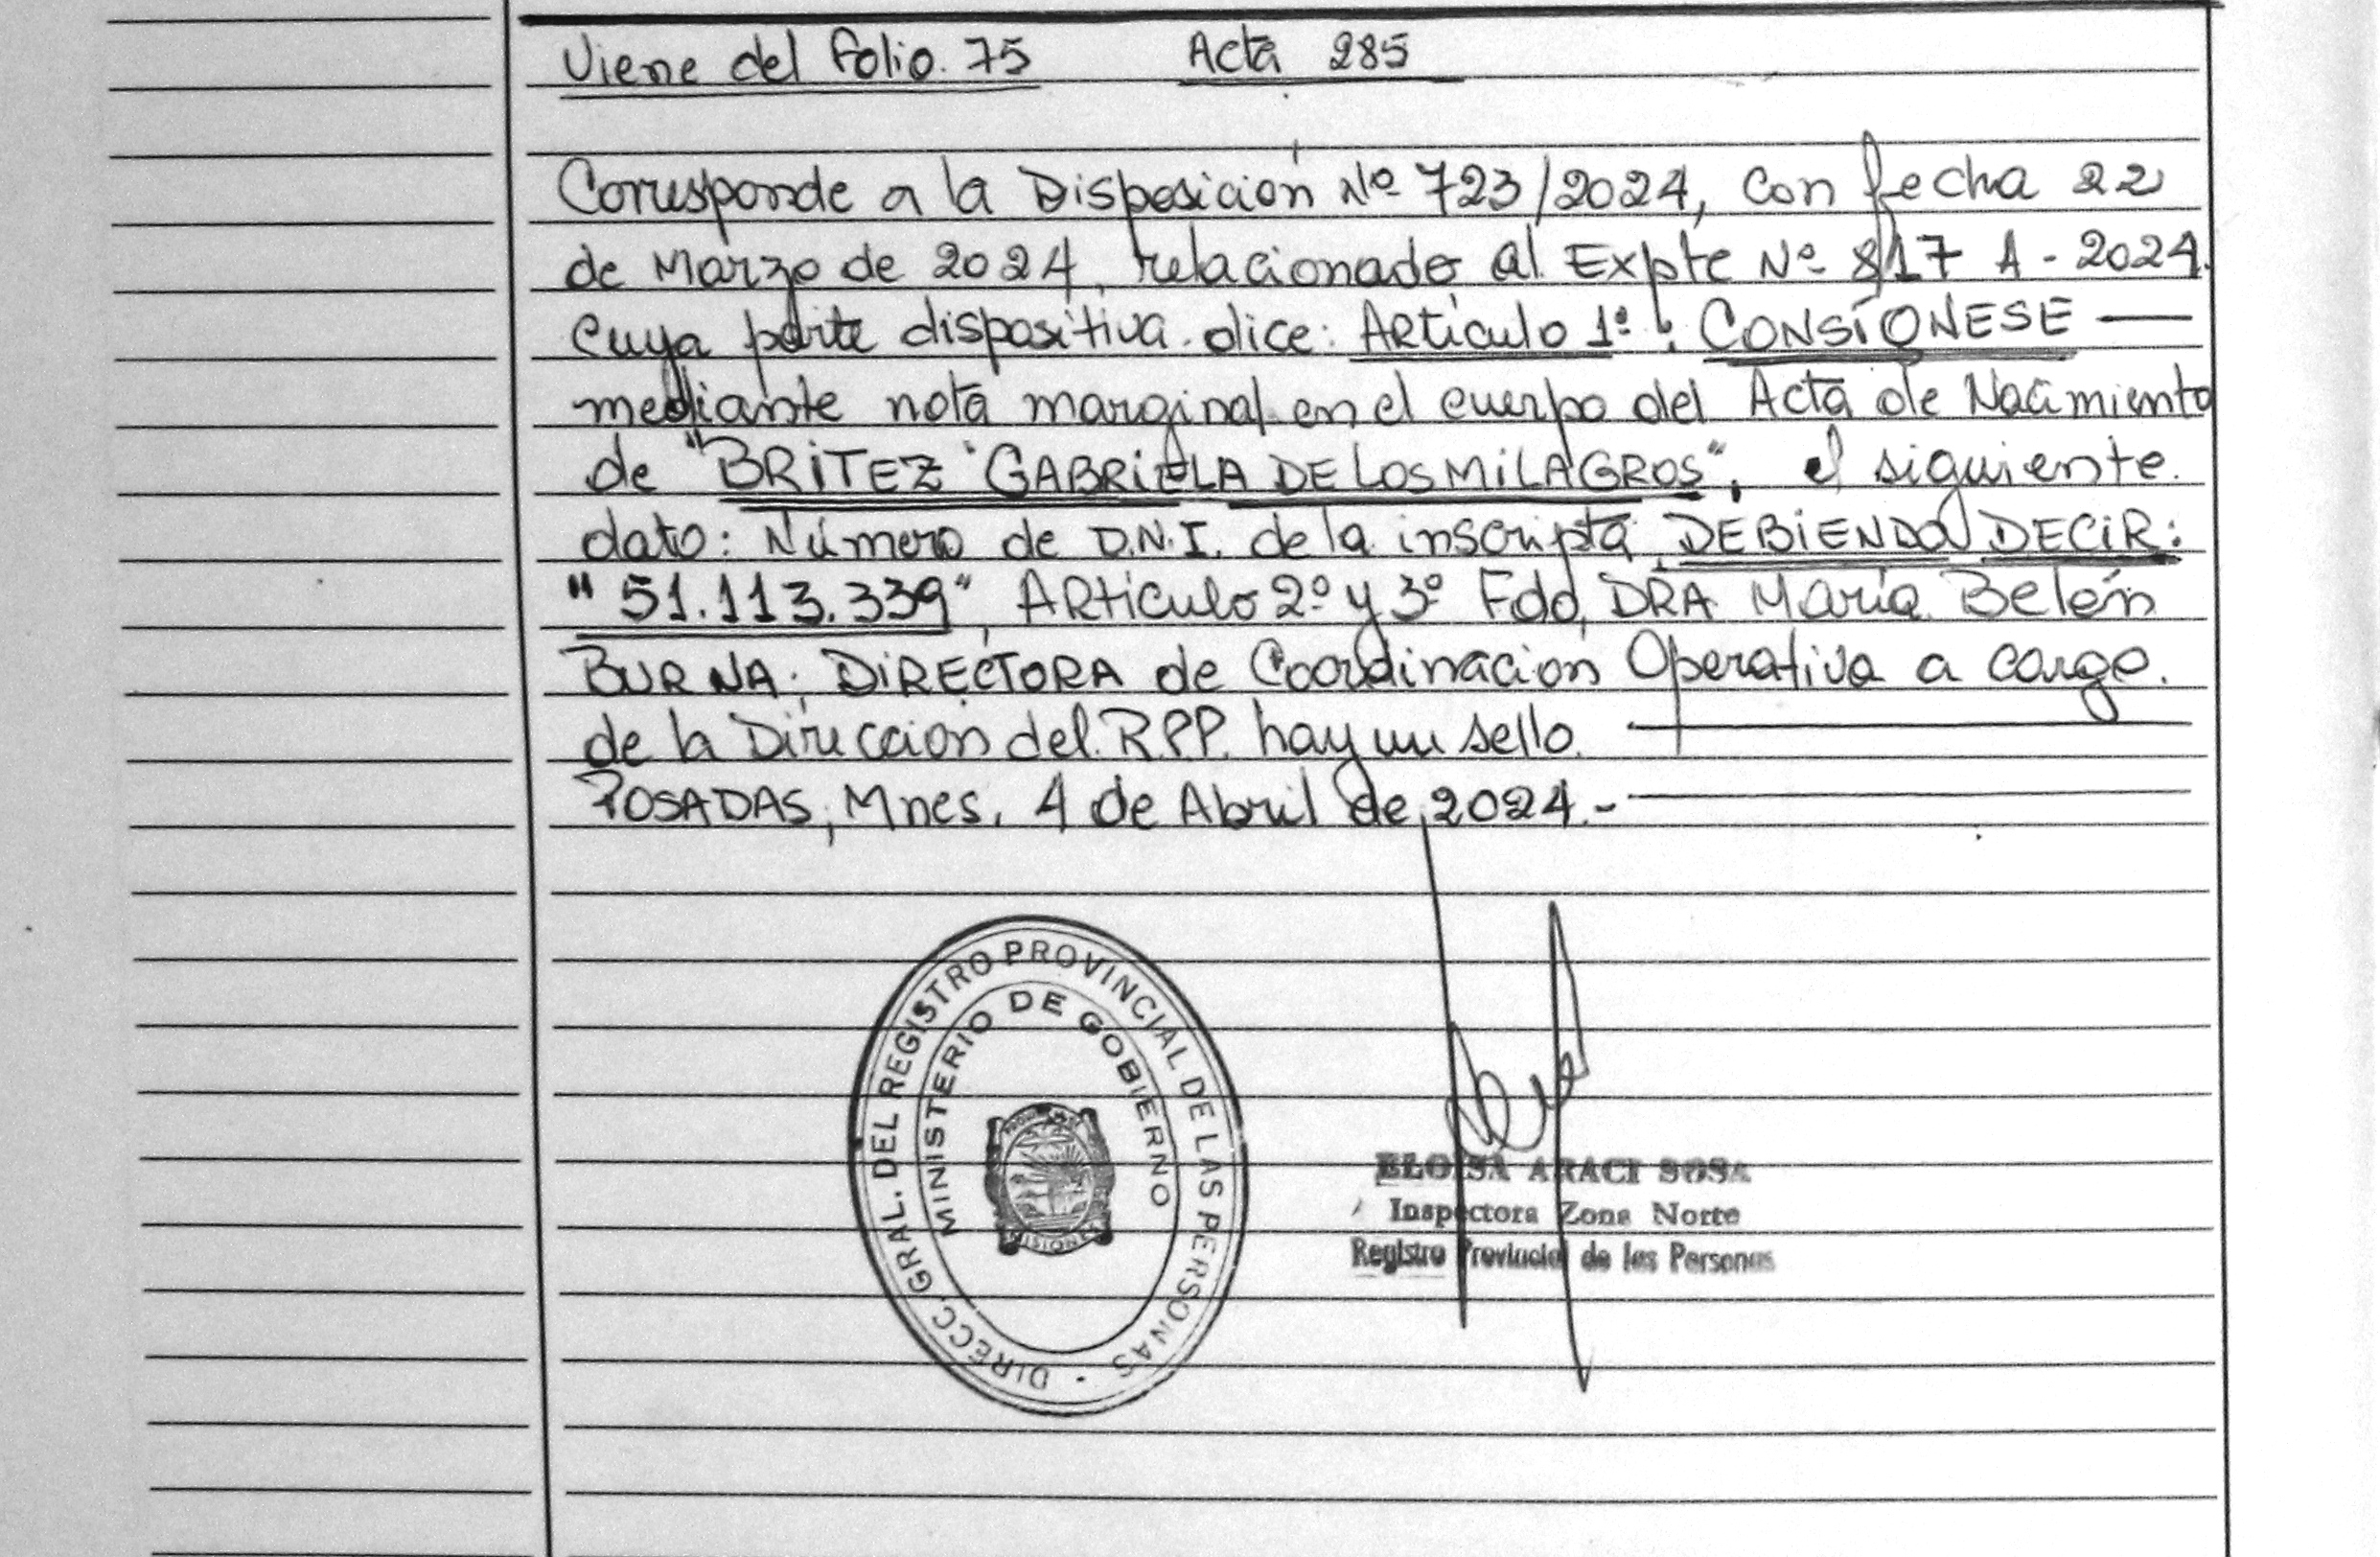 Viene del folio. 75 Acta 285
Corresponde a la Disposición Nº 723/2024, con fecha 22
de Marzo de 2024, relacionado al Expte Nº 817 A - 2024.
cuya parte dispositiva dice: Artículo 1º: CONSÍGNESE —
mediante nota marginal en el cuerpo del Acta de Nacimiento
de "BRITEZ GABRIELA DE LOS MILAGROS", el siguiente.
dato: Número de D.N.I. de la inscripta DEBIENDO DECIR:
"51.113.339", Artículo 2º y 3º Fdo, DRA María Belén
BURNA; DIRECTORA de Coordinación Operativa a cargo.
de la Dirección del R.P.P. hay un sello.
POSADAS, Mnes, 4 de Abril de 2024.-
DIRECC. GRAL. DEL REGISTRO PROVINCIAL DE LAS PERSONAS
MINISTERIO DE GOBIERNO
MISIONES
ELOISA ARACI SOSA
Inspectora Zona Norte
Registro Provincial de las Personas